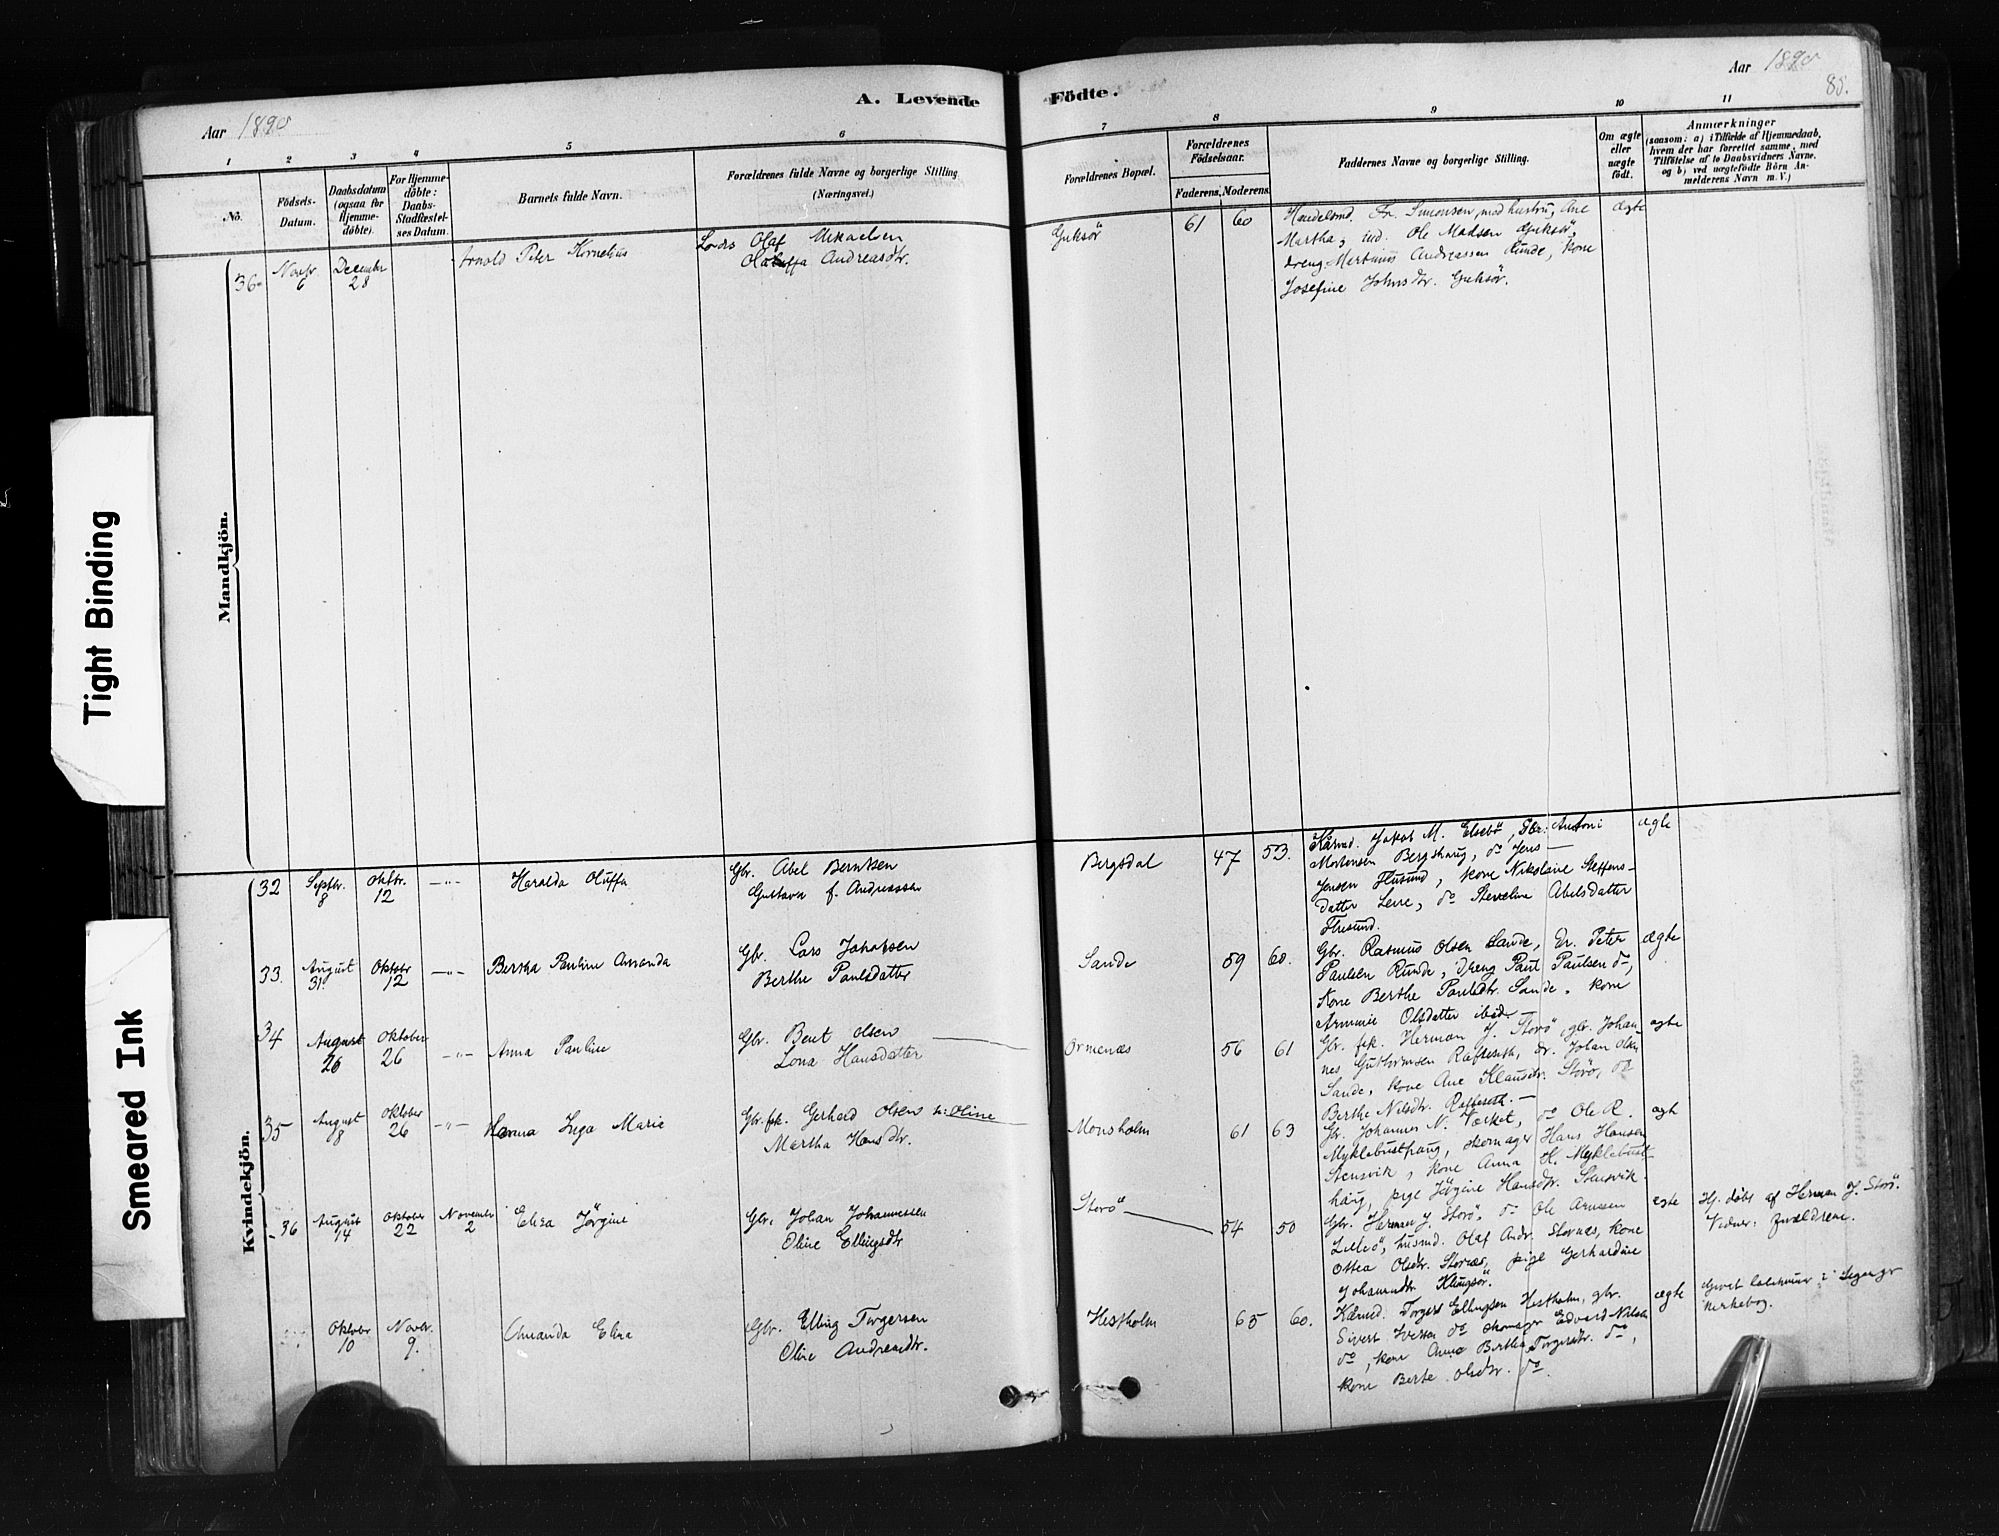 Tight Binding
Smeared Ink
Aar 1890
A. Levende Födte.
Aar 1890
85.
1 2 3 4 5 6 7 8 9 10 11
No.
Födsels-
Datum.
Daabsdatum
(ogsaa for
Hjemme-
döbte).
For Hjemme-
döbte:
Daabs-
Stadfæstel-
ses Datum.
Barnets fulde Navn.
Forældrenes fulde Navne og borgerlige Stilling
(Næringsvei.)
Forældrenes Bopæl.
Forældrenes
Födselsaar.
Faderens. Moderens.
Faddernes Navne og borgerlige Stilling.
Om ægte
eller
uægte
födt.
Anmærkninger
(saasom: a) i Tilfælde af Hjemmedaab,
hvem der har forrettet samme, med
Tilföielse af to Daabsvidners Navne.
og b) ved uægtefödte Börn An-
melderens Navn m. V.)
Mandkjön.
36
Novbr.
6
December
28
Arnold Peter Kornelius
Olaf Mikaelsen
Andreasdtr.
Goksör
61 60
Handelsmd. Fr. Simonsen med hustru, Ane
Martha, ind. Ole Madsen Goksör,
dreng Martinus Andreassen Runde, kone
Josefine Johnsdtr. Goksör.
ægte
Kvindekjön.
32
Septbr.
8
Oktbr.
12
Haralda Oluffa
Gbr. Abel Berntsen
Gustava f. Andreassen
Bergsdal
47 53.
Kårmd. Jakob M. Elsebö, Gbr. Antoni
Mortensen Bergshaug, do Jens
Jensen Flusund, kone Nikolaie Steffens-
datter Leire, do Abelsdatter
Flusund.
ægte
33.
August
31.
Oktobr
12
Bertha Pauline Amanda
Gbr. Lars Johansen
Berthe Paulsdatter
Sande
59 60.
Gbr. Rasmus Olsen Sande, dr. Peter
Paulsen Runde, dreng Paul Paulsen do,
Kone Berthe Paulsdtr. Sande, kone
Olsdatter ibid.
ægte
34
August
26
Oktober
26
Anna Pauline
Gbr. Bent Olsen
Lona Hansdatter
Ormenæs
56 61
Gbr. fsk. Herman J. Storö, gbr. Johan-
nes Guttormsen Rafteseth, dr. Johan Olsen
Sande, kone Ane Klausdtr. Storö, do
Berthe Nilsdtr. Rafteseth.
ægte
35
August
8
Oktober
26
Inga Marie
Gbr. fsk. Gerhard Olsen
Martha Hansdtr.
Monsholm
61 63
Gbr. Johannes N. Vorket, do Ole R.
Myklebusthaug, skomager Hans Hansen
Stensvik, kone Anna H. Myklebust-
haug, pige Jörgine Hansdtr. Stensvik.
ægt
36
August
14
Oktober
22
November
2
Elisa Jörgine
Gbr. Johan Johannessen
Oline Ellingsdtr
Storö
54 50
Gbr. Herman J. Storö, do Ole Arnesen
Lillö, husmd. Olaf Andr. Stornæs, kone
Ottea Olsdtr. Stornæs, pige Gerhardine
Johannsdtr Klungsör.
ægte
Hj. döbt af Herman J. Storö.
Vidner: Forældrene.
Oktobr
10
Novbr.
9.
Amanda Elisa
Gbr. Elling Torgersen
Oline Andreasdtr.
Hestholm
65 60.
Kårmd. Torgers Ellingsen Hestholm, gbr.
Sivert Iversen do skomager Edvard Nilsen
do, kone Anna Bertha Torgersdtr. do,
kone Berte Olsdtr. do.
ægte
kirkebog.